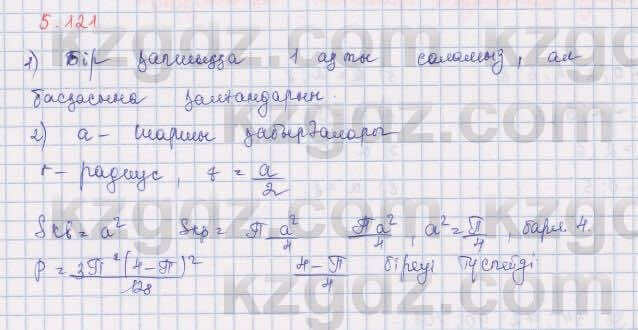 5.121
1) Бір қапшыққа 1 ақты саламыз, ал
басқасына қалғандарын.
2) a - шаршы қабырғалары
r - радиус, r = a/2
Sкв = a² Sкр = П a²/4 Пa²/4 , a² = П/4 , барл. 4.
P = 3П²(4-П)²/128 4-П/4 біреуі түспейді